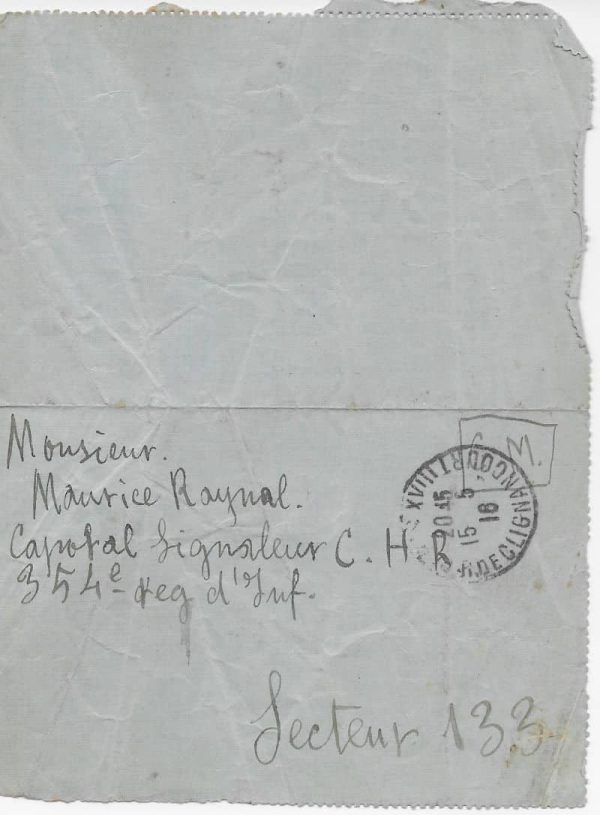 Monsieur.
Maurice Raynal.
Caporal Signaleur C. H. R
354e reg d'Inf.
Secteur 133
F. M.
R. DE CLIGNANCOURT XVIII
20 45
15 5
16